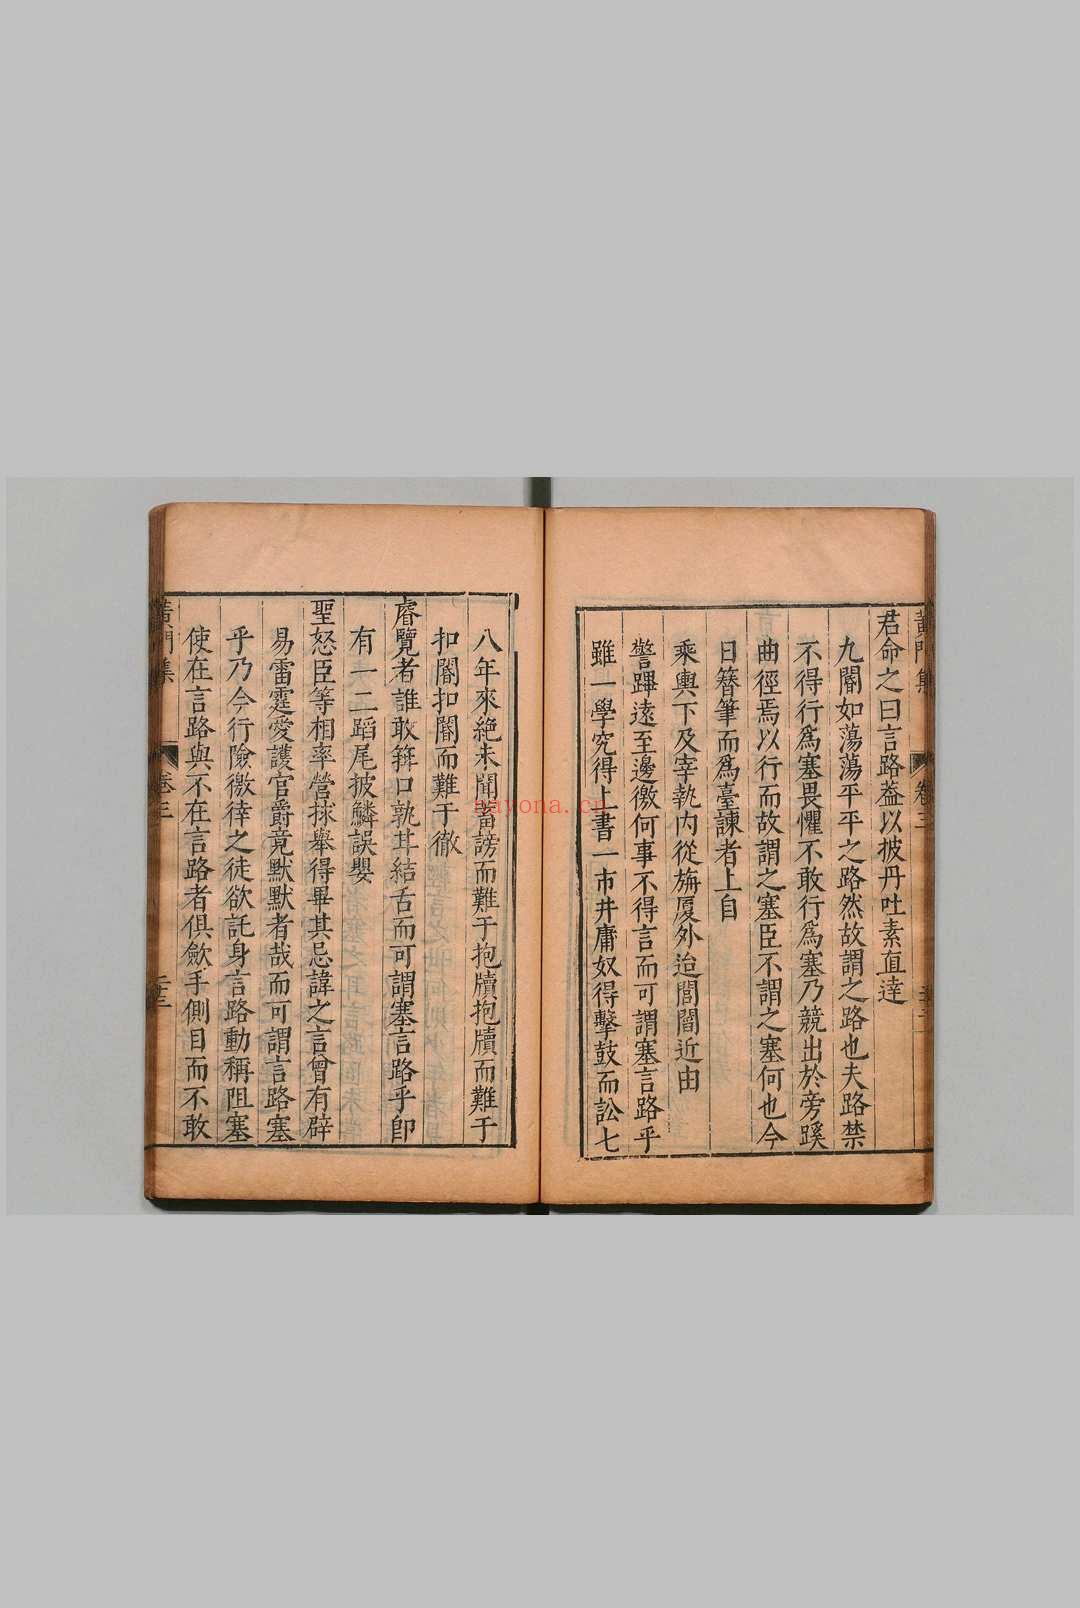 君命之曰言路葢以披丹吐素直達
九閽如蕩蕩平平之路然故謂之路也夫路禁
不得行爲塞畏懼不敢行爲塞乃競出於旁蹊
曲徑焉以行而故謂之塞臣不謂之塞何也今
日簪筆而爲臺諫者上自
乘輿下及宰執內從旃厦外迨閭閻近由
警蹕遠至邊徼何事不得言而可謂塞言路乎
雖一學究得上書一市井庸奴得擊鼓而訟七
八年來絶未聞蓄謗而難于抱牘抱牘而難于
扣閽扣閽而難于徹
睿覽者誰敢箝口孰其結舌而可謂塞言路乎卽
有一二蹈尾披鱗誤嬰
聖怒臣等相率營捄舉得畢其忌諱之言曾有辟
易雷霆愛護官爵竟默默者哉而可謂言路塞
乎乃今行險徼徍之徒欲託身言路動稱阻塞
使在言路與不在言路者俱歛手側目而不敢
黃門集
卷三
nayona.cn